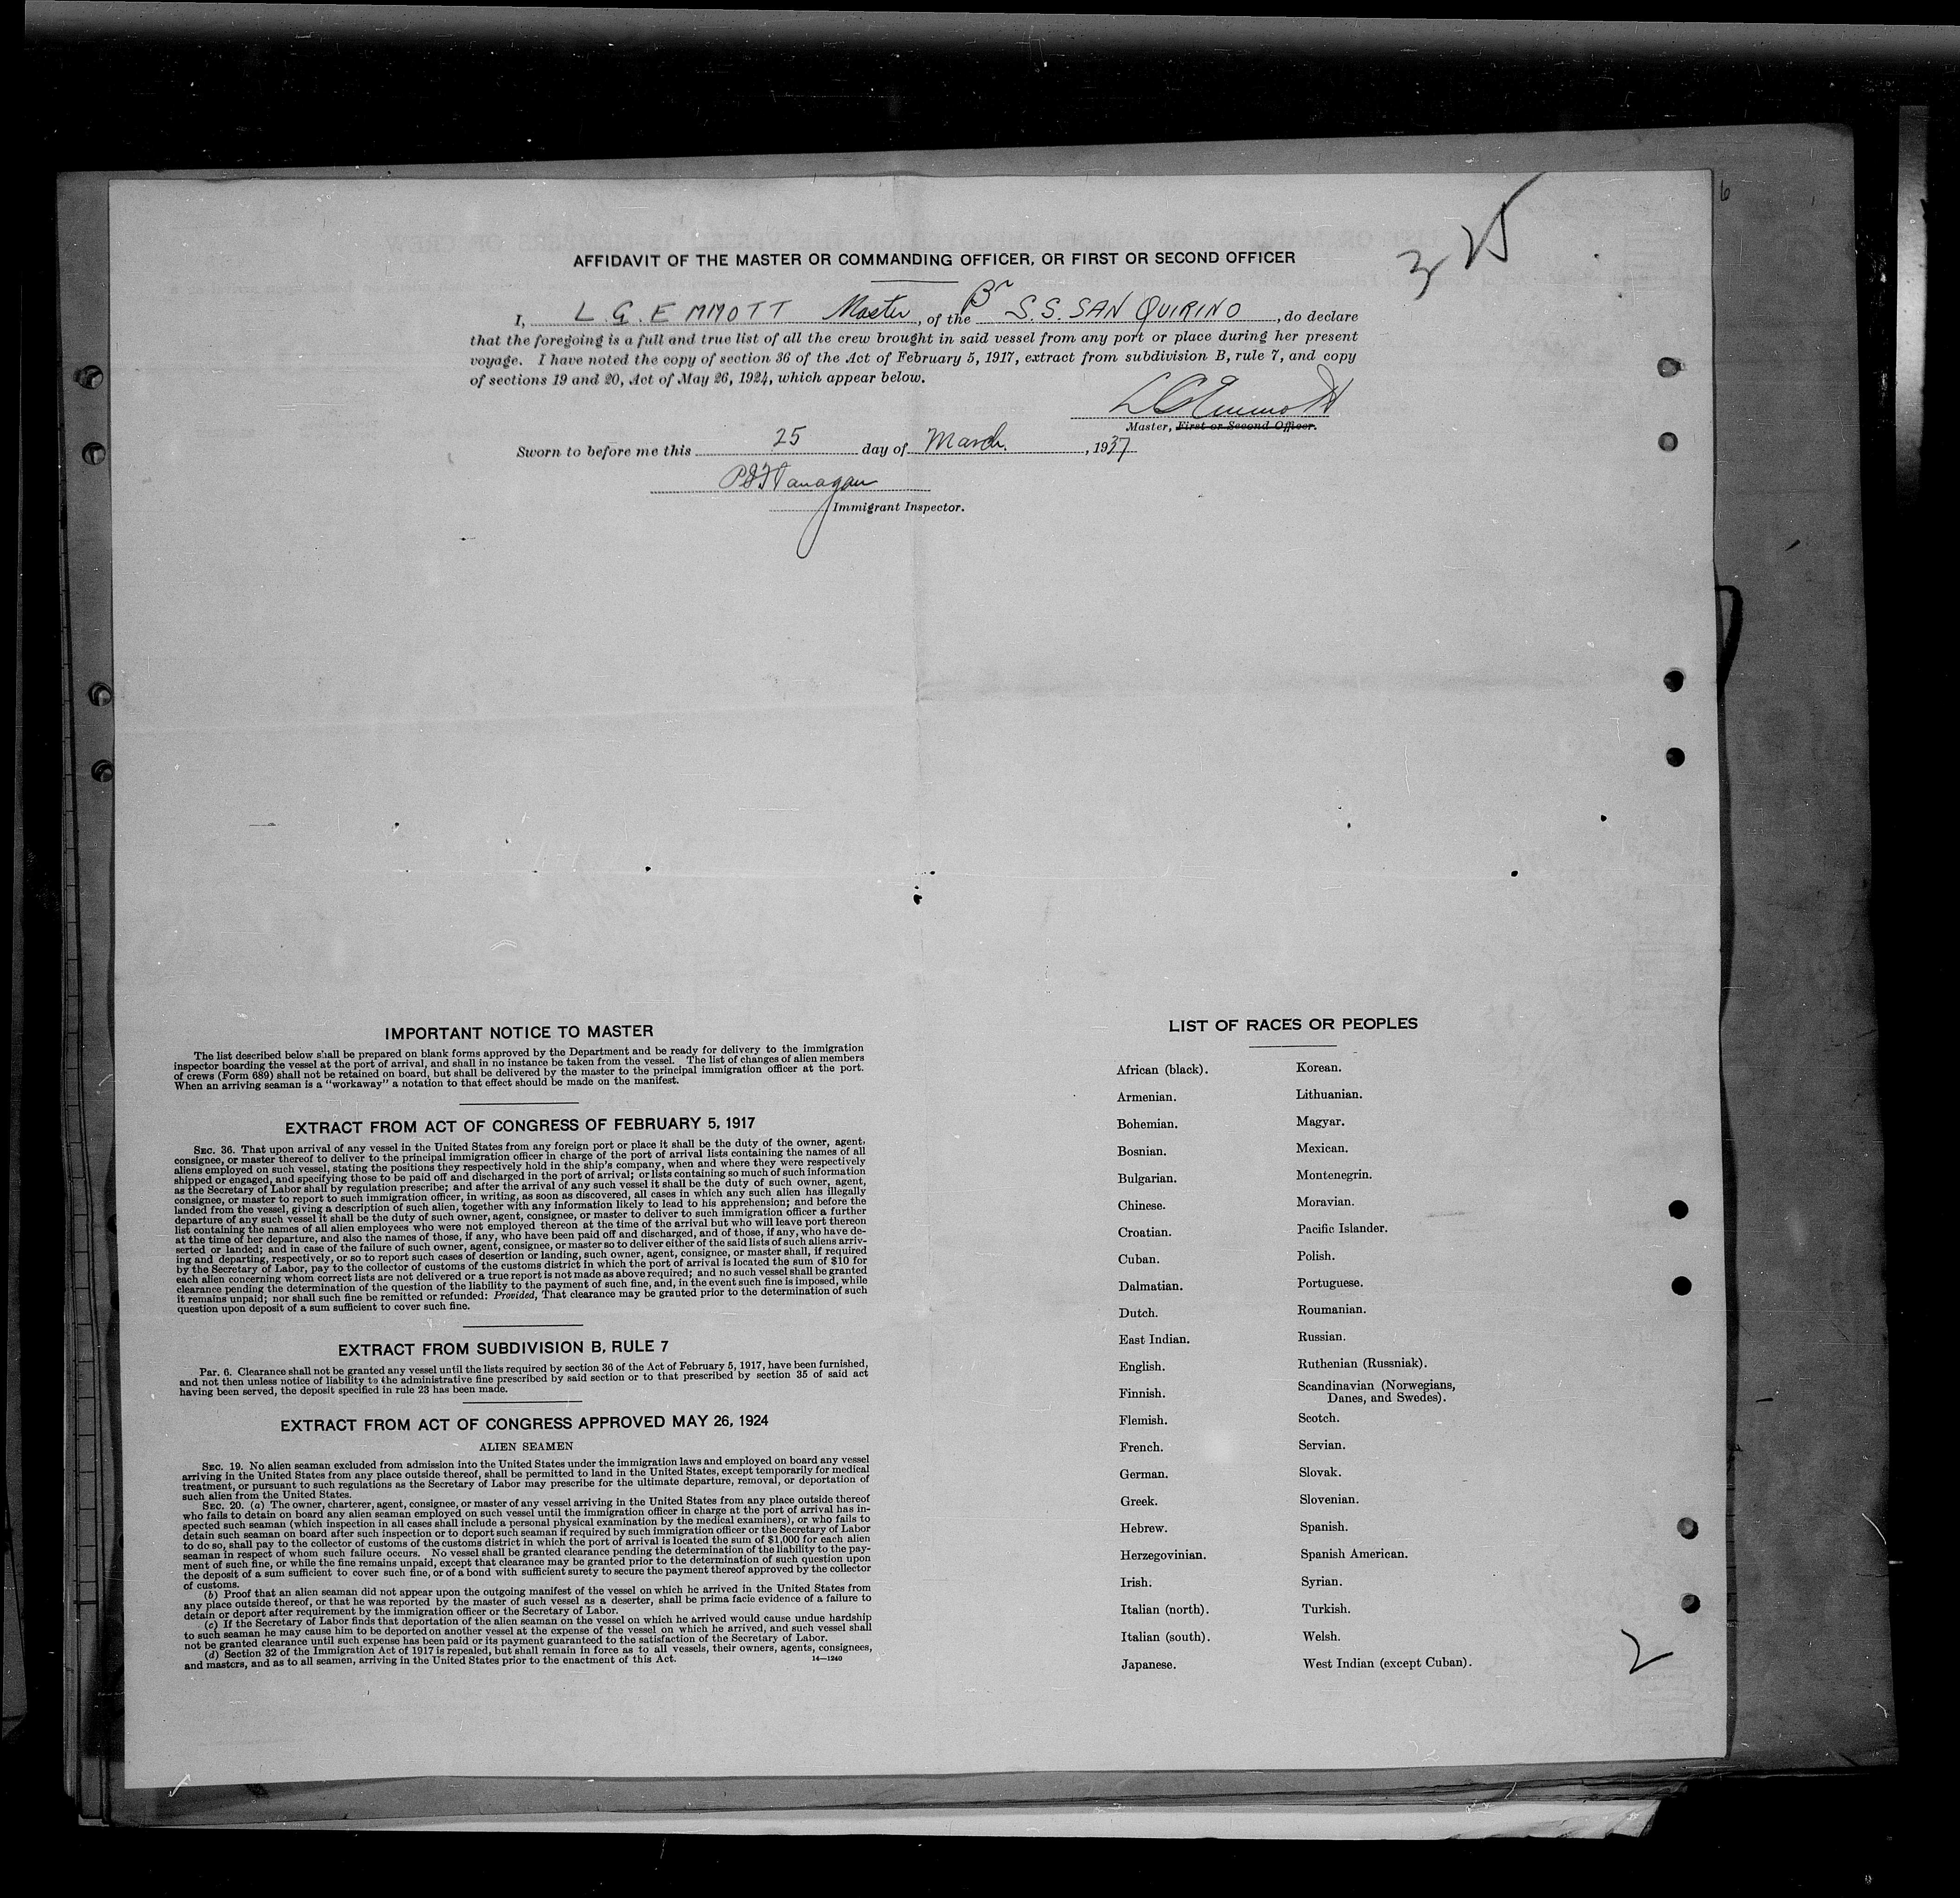 3 25
6
AFFIDAVIT OF THE MASTER OR COMMANDING OFFICER, OR FIRST OR SECOND OFFICER
I, L. G. EMMOTT Master, of the Br S.S. SAN QUIRINO, do declare
that the foregoing is a full and true list of all the crew brought in said vessel from any port or place during her present
voyage. I have noted the copy of section 36 of the Act of February 5, 1917, extract from subdivision B, rule 7, and copy
of sections 19 and 20, Act of May 26, 1924, which appear below.
L G Emmott
Master, First or Second Officer.
Sworn to before me this 25 day of March, 1937
Flanagan
Immigrant Inspector.
IMPORTANT NOTICE TO MASTER
The list described below shall be prepared on blank forms approved by the Department and be ready for delivery to the immigration
inspector boarding the vessel at the port of arrival, and shall in no instance be taken from the vessel. The list of changes of alien members
of crews (Form 689) shall not be retained on board, but shall be delivered by the master to the principal immigration officer at the port.
When an arriving seaman is a "workaway" a notation to that effect should be made on the manifest.
EXTRACT FROM ACT OF CONGRESS OF FEBRUARY 5, 1917
SEC. 36. That upon arrival of any vessel in the United States from any foreign port or place it shall be the duty of the owner, agent,
consignee, or master thereof to deliver to the principal immigration officer in charge of the port of arrival lists containing the names of all
aliens employed on such vessel, stating the positions they respectively hold in the ship's company, when and where they were respectively
shipped or engaged, and specifying those to be paid off and discharged in the port of arrival; or lists containing so much of such information
as the Secretary of Labor shall by regulation prescribe; and after the arrival of any such vessel it shall be the duty of such owner, agent,
consignee, or master to report to such immigration officer, in writing, as soon as discovered, all cases in which any such alien has illegally
landed from the vessel, giving a description of such alien, together with any information likely to lead to his apprehension; and before the
departure of any such vessel it shall be the duty of such owner, agent, consignee, or master to deliver to such immigration officer a further
list containing the names of all alien employees who were not employed thereon at the time of the arrival but who will leave port thereon
at the time of her departure, and also the names of those, if any, who have been paid off and discharged, and of those, if any, who have de-
serted or landed; and in case of the failure of such owner, agent, consignee, or master so to deliver either of the said lists of such aliens arriv-
ing and departing, respectively, or so to report such cases of desertion or landing, such owner, agent, consignee, or master shall, if required
by the Secretary of Labor, pay to the collector of customs of the customs district in which the port of arrival is located the sum of $10 for
each alien concerning whom correct lists are not delivered or a true report is not made as above required; and no such vessel shall be granted
clearance pending the determination of the question of the liability to the payment of such fine, and, in the event such fine is imposed, while
it remains unpaid; nor shall such fine be remitted or refunded: Provided, That clearance may be granted prior to the determination of such
question upon deposit of a sum sufficient to cover such fine.
EXTRACT FROM SUBDIVISION B, RULE 7
Par. 6. Clearance shall not be granted any vessel until the lists required by section 36 of the Act of February 5, 1917, have been furnished,
and not then unless notice of liability to the administrative fine prescribed by said section or to that prescribed by section 35 of said act
having been served, the deposit specified in rule 23 has been made.
EXTRACT FROM ACT OF CONGRESS APPROVED MAY 26, 1924
ALIEN SEAMEN
SEC. 19. No alien seaman excluded from admission into the United States under the immigration laws and employed on board any vessel
arriving in the United States from any place outside thereof, shall be permitted to land in the United States, except temporarily for medical
treatment, or pursuant to such regulations as the Secretary of Labor may prescribe for the ultimate departure, removal, or deportation of
such alien from the United States.
SEC. 20. (a) The owner, charterer, agent, consignee, or master of any vessel arriving in the United States from any place outside thereof
who fails to detain on board any alien seaman employed on such vessel until the immigration officer in charge at the port of arrival has in-
spected such seaman (which inspection in all cases shall include a personal physical examination by the medical examiners), or who fails to
detain such seaman on board after such inspection or to deport such seaman if required by such immigration officer or the Secretary of Labor
to do so, shall pay to the collector of customs of the customs district in which the port of arrival is located the sum of $1,000 for each alien
seaman in respect of whom such failure occurs. No vessel shall be granted clearance pending the determination of the liability to the pay-
ment of such fine, or while the fine remains unpaid, except that clearance may be granted prior to the determination of such question upon
the deposit of a sum sufficient to cover such fine, or of a bond with sufficient surety to secure the payment thereof approved by the collector
of customs.
(b) Proof that an alien seaman did not appear upon the outgoing manifest of the vessel on which he arrived in the United States from
any place outside thereof, or that he was reported by the master of such vessel as a deserter, shall be prima facie evidence of a failure to
detain or deport after requirement by the immigration officer or the Secretary of Labor.
(c) If the Secretary of Labor finds that deportation of the alien seaman on the vessel on which he arrived would cause undue hardship
to such seaman he may cause him to be deported on another vessel at the expense of the vessel on which he arrived, and such vessel shall
not be granted clearance until such expense has been paid or its payment guaranteed to the satisfaction of the Secretary of Labor.
(d) Section 32 of the Immigration Act of 1917 is repealed, but shall remain in force as to all vessels, their owners, agents, consignees,
and masters, and as to all seamen, arriving in the United States prior to the enactment of this Act.
14—1240
LIST OF RACES OR PEOPLES
African (black).
Armenian.
Bohemian.
Bosnian.
Bulgarian.
Chinese.
Croatian.
Cuban.
Dalmatian.
Dutch.
East Indian.
English.
Finnish.
Flemish.
French.
German.
Greek.
Hebrew.
Herzegovinian.
Irish.
Italian (north).
Italian (south).
Japanese.
Korean.
Lithuanian.
Magyar.
Mexican.
Montenegrin.
Moravian.
Pacific Islander.
Polish.
Portuguese.
Roumanian.
Russian.
Ruthenian (Russniak).
Scandinavian (Norwegians,
Danes, and Swedes).
Scotch.
Servian.
Slovak.
Slovenian.
Spanish.
Spanish American.
Syrian.
Turkish.
Welsh.
West Indian (except Cuban).
2